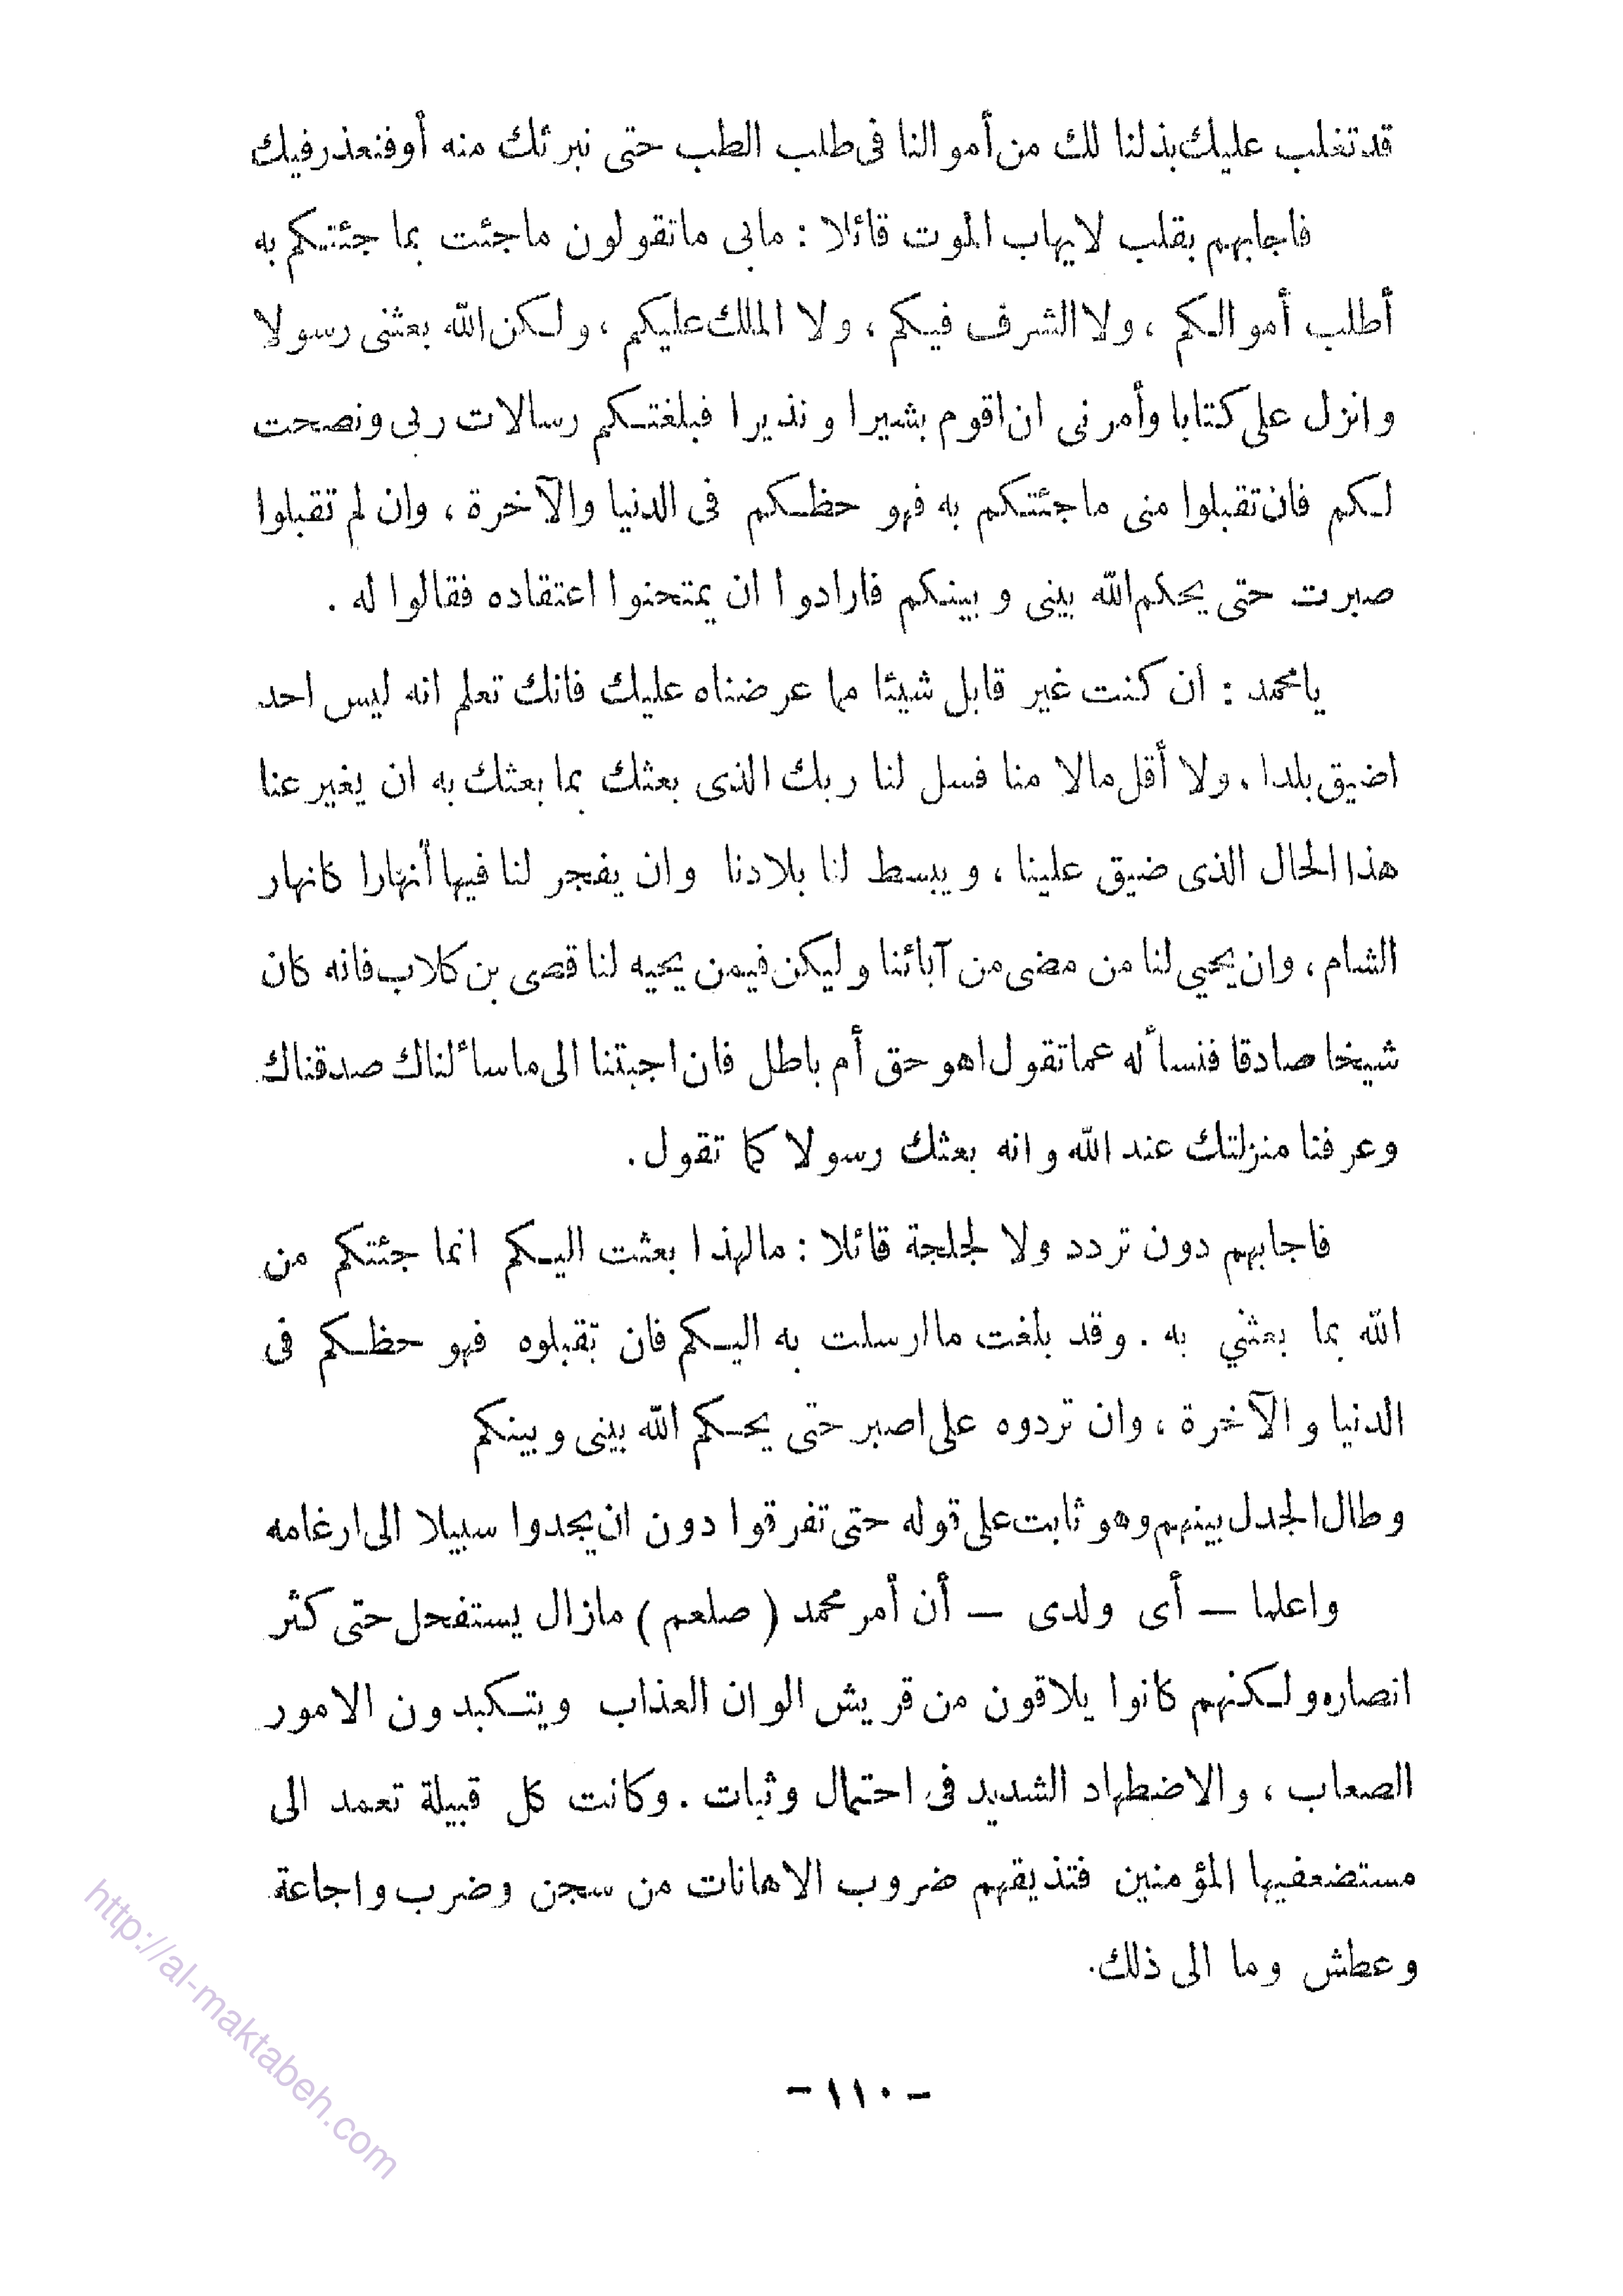 قد تغلب عليك بذلنا لك من أموالنا فى طلب الطب حتى نبرئك منه أو فنعذر فيك
فاجابهم بقلب لا يهاب الموت قائلا : مابى ما تقولون ماجئت بما جئتيكم به
أطلب أموالكم ، ولا الشرف فيكم ، ولا الملك عليكم ، ولكن الله بعثنى رسولا
وانزل على كتابا وأمرنى ان اقوم بشيرا ونذيرا فبلغتكم رسالات ربى ونصحت
لكم فان تقبلوا منى ماجئتكم به فهو حظكم فى الدنيا والآخرة ، وان لم تقبلوا
صبرت حتى يحكم الله بينى وبينكم فارادوا ان يمتحنوا اعتقاده فقالوا له .
يامحمد : ان كنت غير قابل شيئا مما عرضناه عليك فانك تعلم انه ليس احد
اضيق بلدا ، ولا أقل مالا منا فسل لنا ربك الذى بعثك بما بعثك به ان يغير عنا
هذا الحال الذى ضيق علينا ، ويبسط لنا بلادنا وان يفجر لنا فيها أنهارا كانهار
الشام ، وان يحيي لنا من مضى من آبائنا وليكن فيمن يحييه لنا قصى بن كلاب فانه كان
شيخا صادقا فنسأله عما تقول اهو حق أم باطل فان اجبتنا الى ما سألناك صدقناك
وعرفنا منزلتك عند الله وانه بعثك رسولا كما تقول.
فاجابهم دون تردد ولا لجلجة قائلا : مالهذا بعثت اليكم انما جئتكم من
الله بما بعثني به . وقد بلغت ماارسلت به اليكم فان تقبلوه فهو حظكم فى
الدنيا والآخرة ، وان تردوه على اصبر حتى يحكم الله بينى وبينكم
وطال الجدل بينهم وهو ثابت على قوله حتى تفرقوا دون ان يجدوا سبيلا الى ارغامه
واعلما — أى ولدى — أن أمر محمد ( صلعم ) مازال يستفحل حتى كثر
انصاره ولكنهم كانوا يلاقون من قريش الوان العذاب ويتكبدون الامور
الصعاب ، والاضطهاد الشديد فى احتمال وثبات . وكانت كل قبيلة تعمد الى
مستضعفيها المؤمنين فتذيقهم ضروب الاهانات من سجن وضرب واجاعة
وعطش وما الى ذلك.
- ١١٠ -
http://al-maktabeh.com